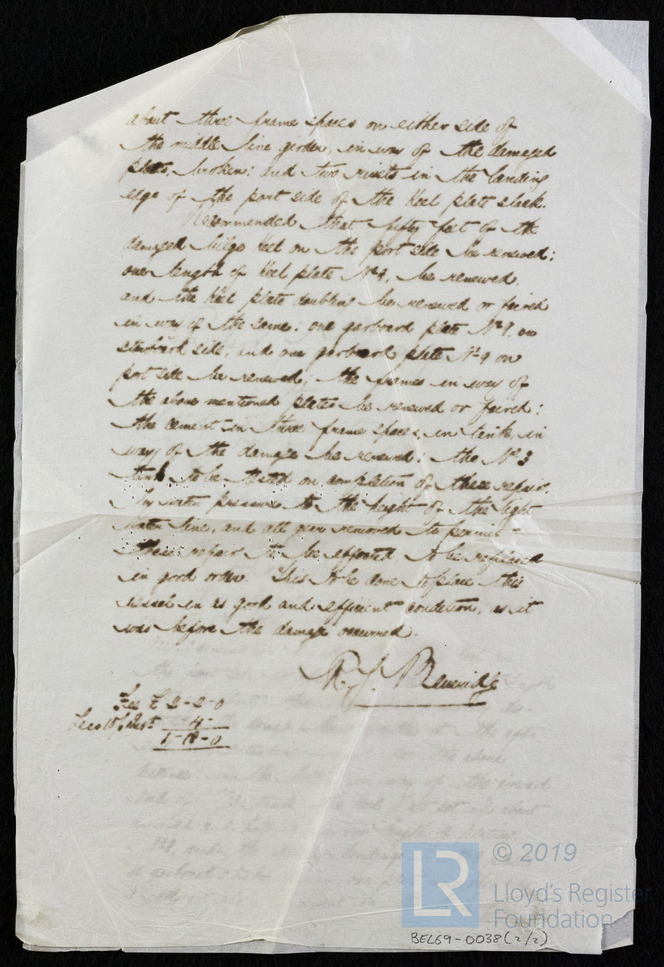 about three frame spaces on either side of
the middle line girder, in way of the damaged
plates, broken; and two rivets in the landing
edge of the port side of the keel plate slack.
Recommended that fifty feet of the
damaged bilge keel on the port side be renewed:
one length of keel plate No 4, be renewed,
and the keel plate doubling be renewed or faired
in way of the same: one garboard plate No 9 on
starboard side, and one garboard plate No 9 on
port side be renewed; the frames in way of
the above mentioned plates be renewed or faired:
the cement in three frame spaces, in tank, in
way of the damage be renewed: the No 3
tank to be tested on completion of these repairs.
by water pressure to the height of the light
water line, and all gear removed to permit
these repairs to be effected to be replaced
in good order. This to be done to place this
vessel in as good and efficient condition, as it
was before the damage occurred.
R. J. Beveridge
Fee £ 2-2-0
Less 10% 4-
1-18-0
© 2019
LR
Lloyd's Register
Foundation
BEL69-0038 (2/2)